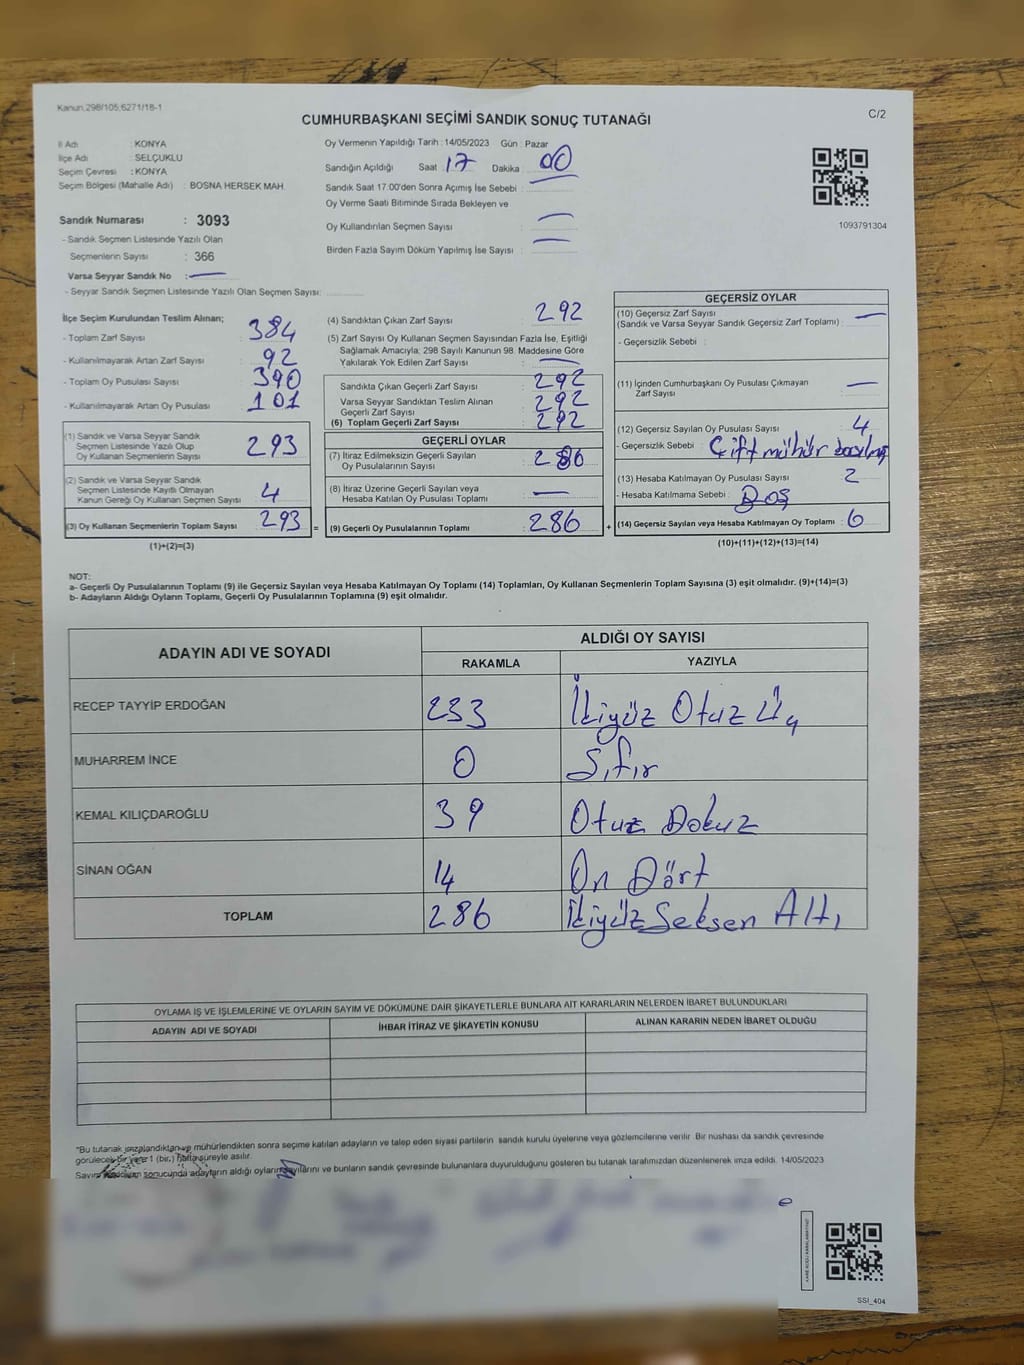 Kanun:298/105;6271/18-1
C/2
CUMHURBAŞKANI SEÇİMİ SANDIK SONUÇ TUTANAĞI
İl Adı : KONYA
İlçe Adı : SELÇUKLU
Seçim Çevresi : KONYA
Seçim Bölgesi (Mahalle Adı) : BOSNA HERSEK MAH.
Sandık Numarası : 3093
- Sandık Seçmen Listesinde Yazılı Olan
Seçmenlerin Sayısı : 366
Varsa Seyyar Sandık No : —
- Seyyar Sandık Seçmen Listesinde Yazılı Olan Seçmen Sayısı:
Oy Vermenin Yapıldığı Tarih : 14/05/2023 Gün : Pazar
Sandığın Açıldığı Saat : 17 Dakika : 00
Sandık Saat 17:00'den Sonra Açımış İse Sebebi :
Oy Verme Saati Bitiminde Sırada Bekleyen ve
Oy Kullandırılan Seçmen Sayısı : —
Birden Fazla Sayım Döküm Yapılmış İse Sayısı : —
1093791304
İlçe Seçim Kurulundan Teslim Alınan;
- Toplam Zarf Sayısı : 384
- Kullanılmayarak Artan Zarf Sayısı : 92
- Toplam Oy Pusulası Sayısı : 390
- Kullanılmayarak Artan Oy Pusulası : 101
(1) Sandık ve Varsa Seyyar Sandık
Seçmen Listesinde Yazılı Olup
Oy Kullanan Seçmenlerin Sayısı : 293
(2) Sandık ve Varsa Seyyar Sandık
Seçmen Listesinde Kayıtlı Olmayan
Kanun Gereği Oy Kullanan Seçmen Sayısı : 4
(3) Oy Kullanan Seçmenlerin Toplam Sayısı : 293 =
(1)+(2)=(3)
(4) Sandıktan Çıkan Zarf Sayısı : 292
(5) Zarf Sayısı Oy Kullanan Seçmen Sayısından Fazla İse, Eşitliği
Sağlamak Amacıyla; 298 Sayılı Kanunun 98. Maddesine Göre
Yakılarak Yok Edilen Zarf Sayısı : —
Sandıkta Çıkan Geçerli Zarf Sayısı : 292
Varsa Seyyar Sandıktan Teslim Alınan
Geçerli Zarf Sayısı : 292
(6) Toplam Geçerli Zarf Sayısı : 292
GEÇERLİ OYLAR
(7) İtiraz Edilmeksizin Geçerli Sayılan
Oy Pusulalarının Sayısı : 286
(8) İtiraz Üzerine Geçerli Sayılan veya
Hesaba Katılan Oy Pusulası Toplamı : —
(9) Geçerli Oy Pusulalarının Toplamı : 286 +
GEÇERSİZ OYLAR
(10) Geçersiz Zarf Sayısı
(Sandık ve Varsa Seyyar Sandık Geçersiz Zarf Toplamı) : —
- Geçersizlik Sebebi :
(11) İçinden Cumhurbaşkanı Oy Pusulası Çıkmayan
Zarf Sayısı : —
(12) Geçersiz Sayılan Oy Pusulası Sayısı : 4
- Geçersizlik Sebebi : Çift mühür
(13) Hesaba Katılmayan Oy Pusulası Sayısı : 2
- Hesaba Katılmama Sebebi : Boş
(14) Geçersiz Sayılan veya Hesaba Katılmayan Oy Toplamı : 6
(10)+(11)+(12)+(13)=(14)
NOT:
a- Geçerli Oy Pusulalarının Toplamı (9) ile Geçersiz Sayılan veya Hesaba Katılmayan Oy Toplamı (14) Toplamları, Oy Kullanan Seçmenlerin Toplam Sayısına (3) eşit olmalıdır. (9)+(14)=(3)
b- Adayların Aldığı Oyların Toplamı, Geçerli Oy Pusulalarının Toplamına (9) eşit olmalıdır.
ADAYIN ADI VE SOYADI
ALDIĞI OY SAYISI
RAKAMLA YAZIYLA
RECEP TAYYİP ERDOĞAN 233 İkiyüz Otuz Üç
MUHARREM İNCE 0 Sıfır
KEMAL KILIÇDAROĞLU 39 Otuz Dokuz
SİNAN OĞAN 14 On Dört
TOPLAM 286 İkiyüz Seksen Altı
OYLAMA İŞ VE İŞLEMLERİNE VE OYLARIN SAYIM VE DÖKÜMÜNE DAİR ŞİKAYETLERLE BUNLARA AİT KARARLARIN NELERDEN İBARET BULUNDUKLARI
ADAYIN ADI VE SOYADI İHBAR İTİRAZ VE ŞİKAYETİN KONUSU ALINAN KARARIN NEDEN İBARET OLDUĞU
*Bu tutanak imzalandıktan ve mühürlendikten sonra seçime katılan adayların ve talep eden siyasi partilerin sandık kurulu üyelerine veya gözlemcilerine verilir. Bir nüshası da sandık çevresinde
görülecek bir yere 1 (bir) hafta süreyle asılır.
Sayım sonucunda adayların aldığı oyların sayılarını ve bunların sandık çevresinde bulunanlara duyurulduğunu gösteren bu tutanak tarafımızdan düzenlenerek imza edildi. 14/05/2023
SSI_404